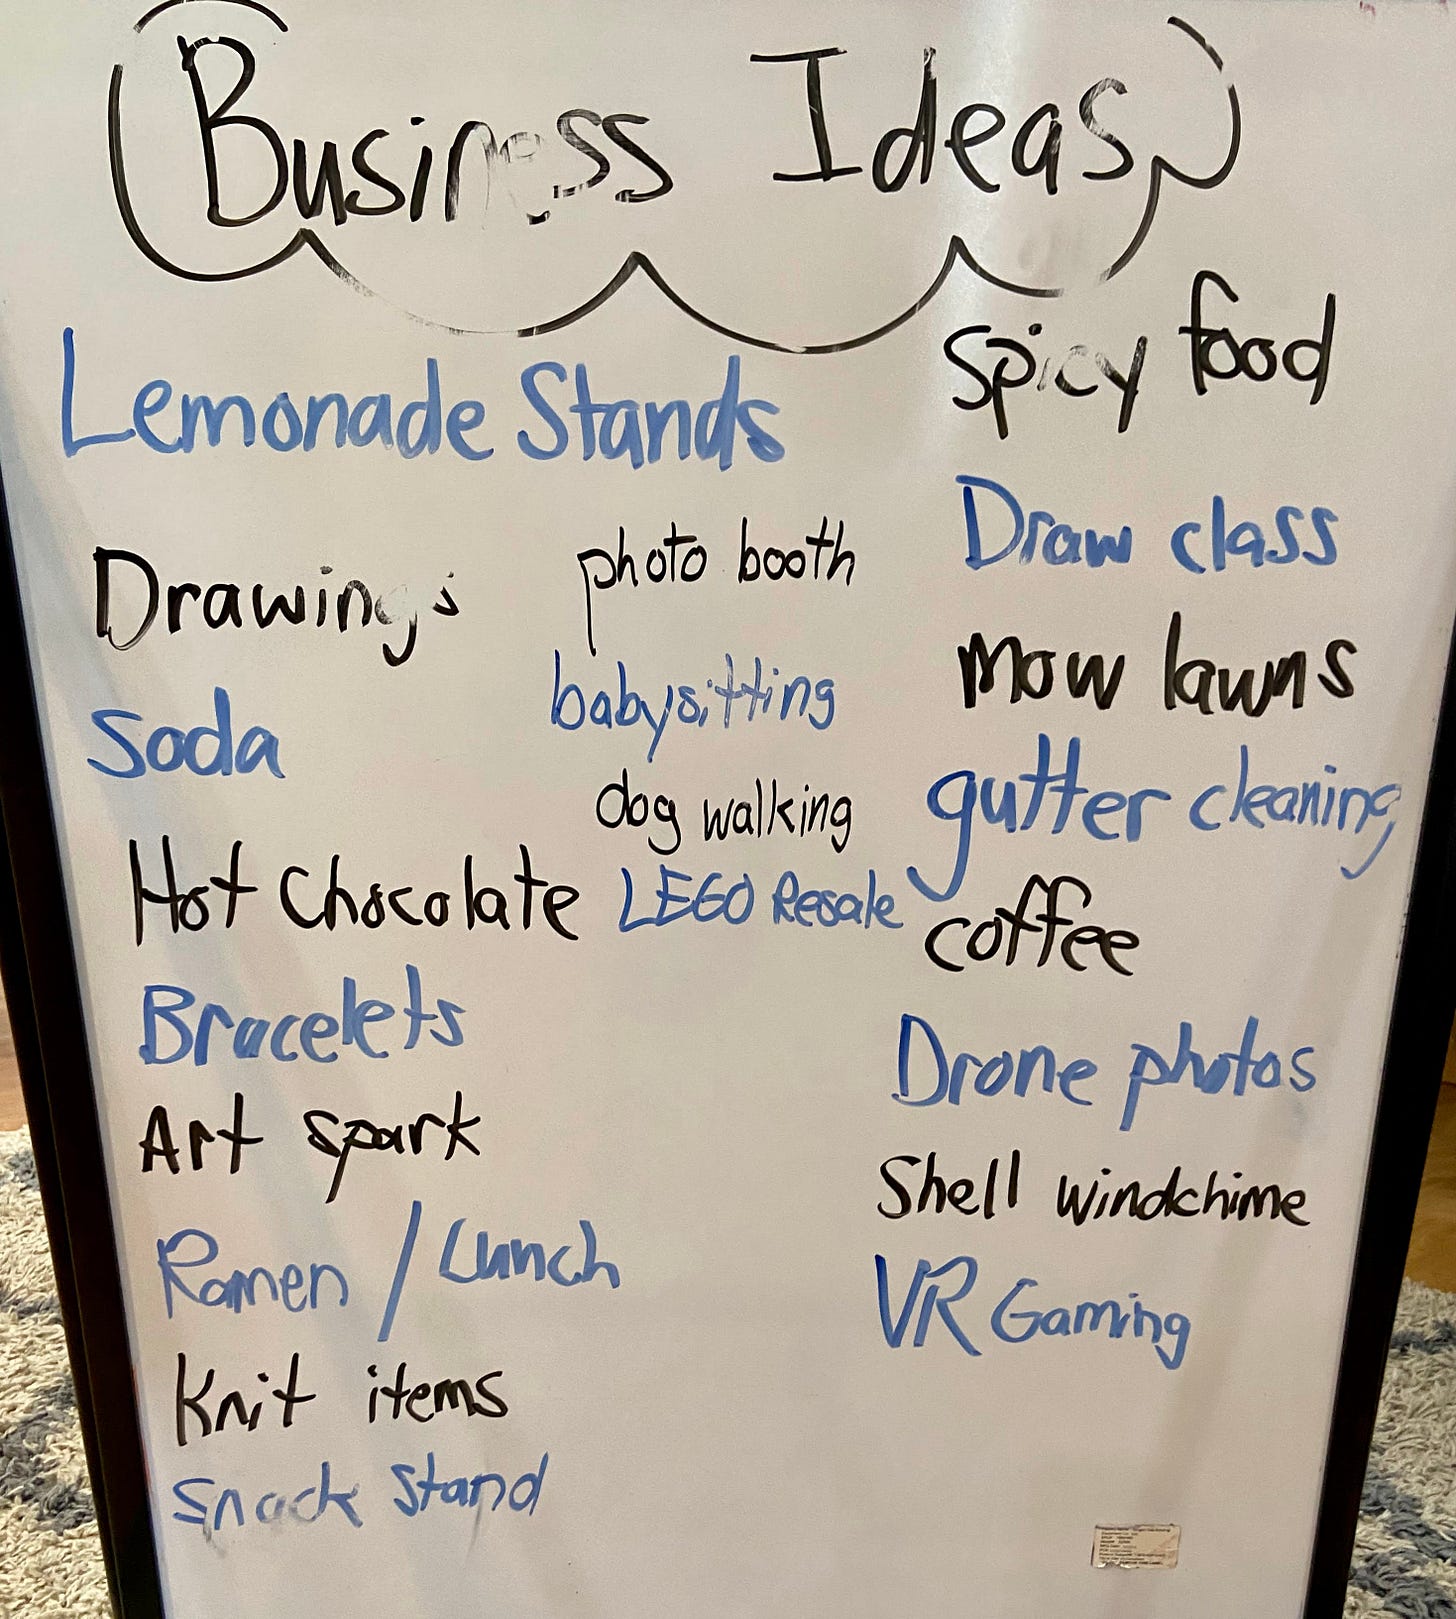 Business Ideas
Lemonade Stands
Drawings
Soda
Hot Chocolate
Bracelets
Art spark
Ramen / Lunch
Knit items
Snack Stand
photo booth
babysitting
dog walking
LEGO Resale
spicy food
Draw class
mow lawns
gutter cleaning
coffee
Drone photos
Shell windchime
VR Gaming